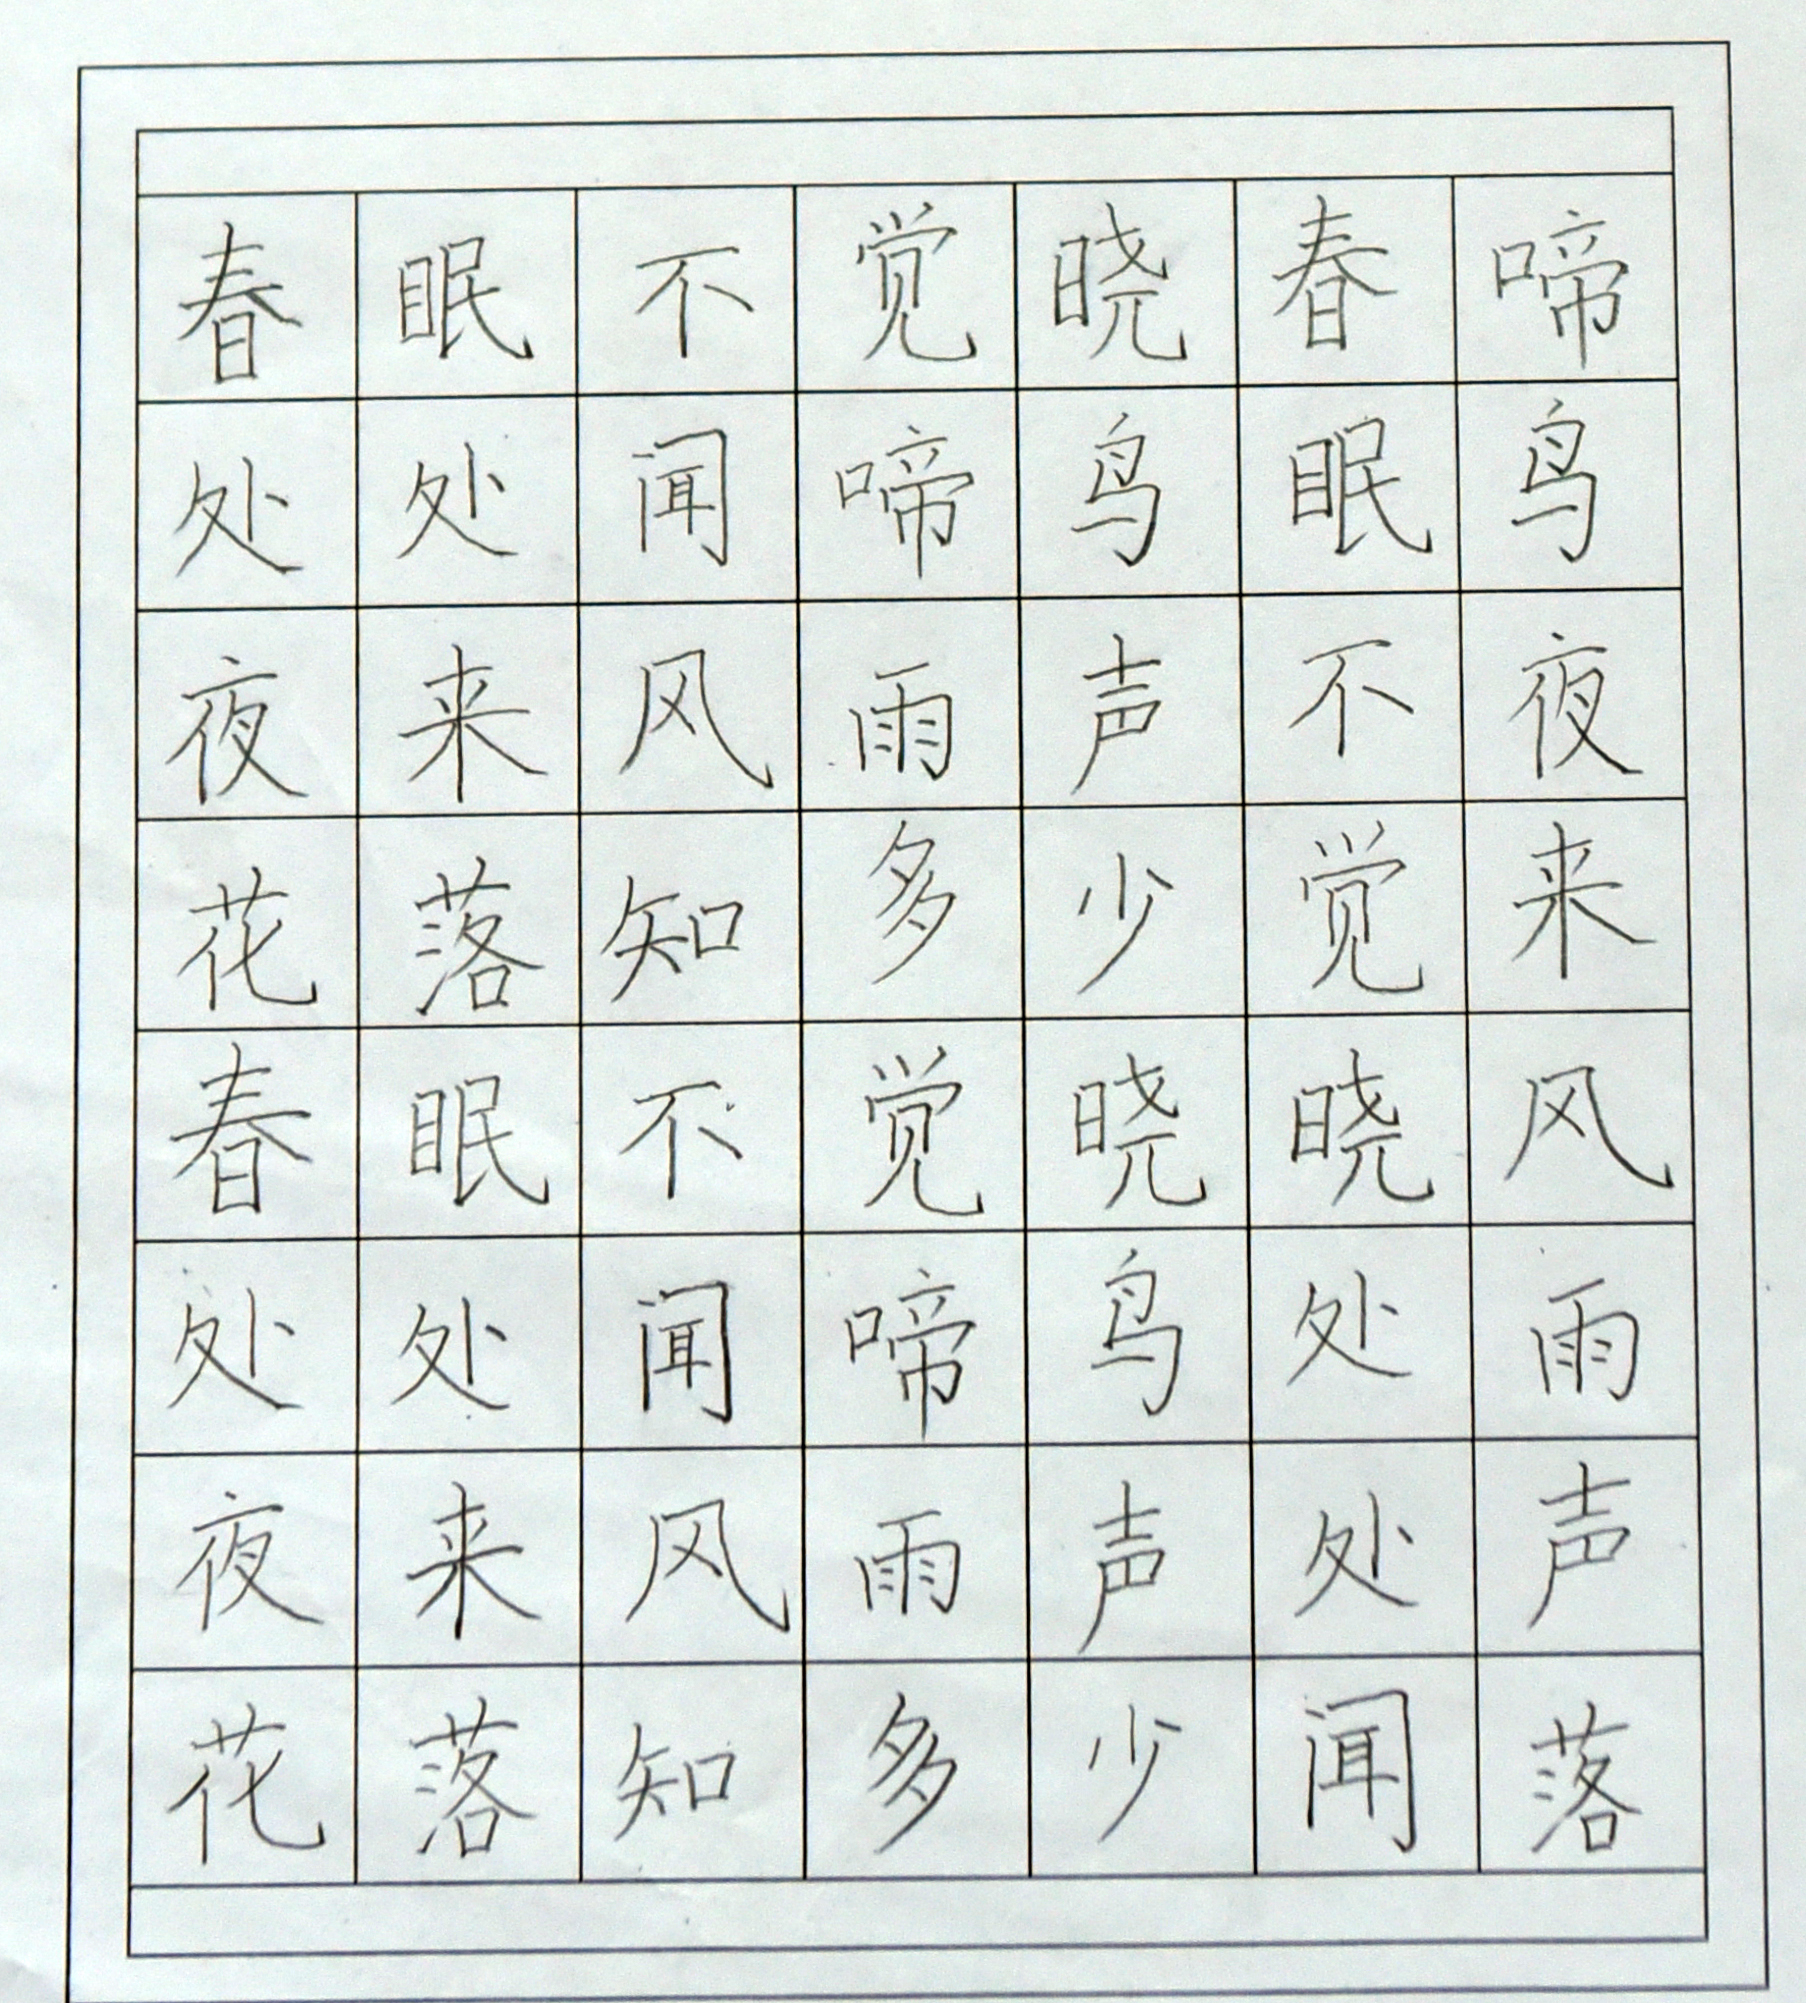 春眠不觉晓春啼
处处闻啼鸟眠鸟
夜来风雨声不夜
花落知多少觉来
春眠不觉晓晓风
处处闻啼鸟处雨
夜来风雨声处声
花落知多少闻落